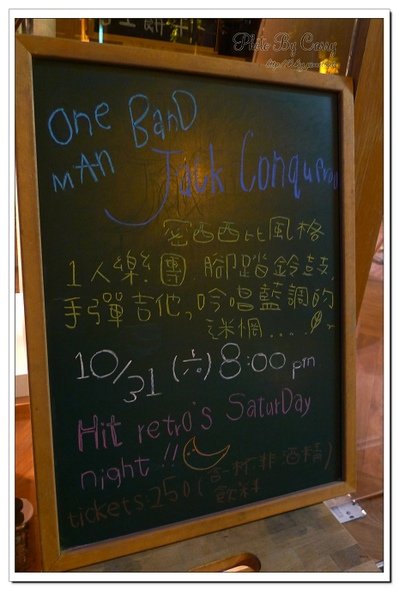 Photo By Carry
One Band
man Jack Conqueroo
密西西比風格
1人樂團 腳踏鈴鼓,
手彈吉他,吟唱藍調的
迷惘....
10/31 (六) 8:00 pm
Hit retro's SaturDay
night!!
tickets:250 (含一杯非酒精
飲料)